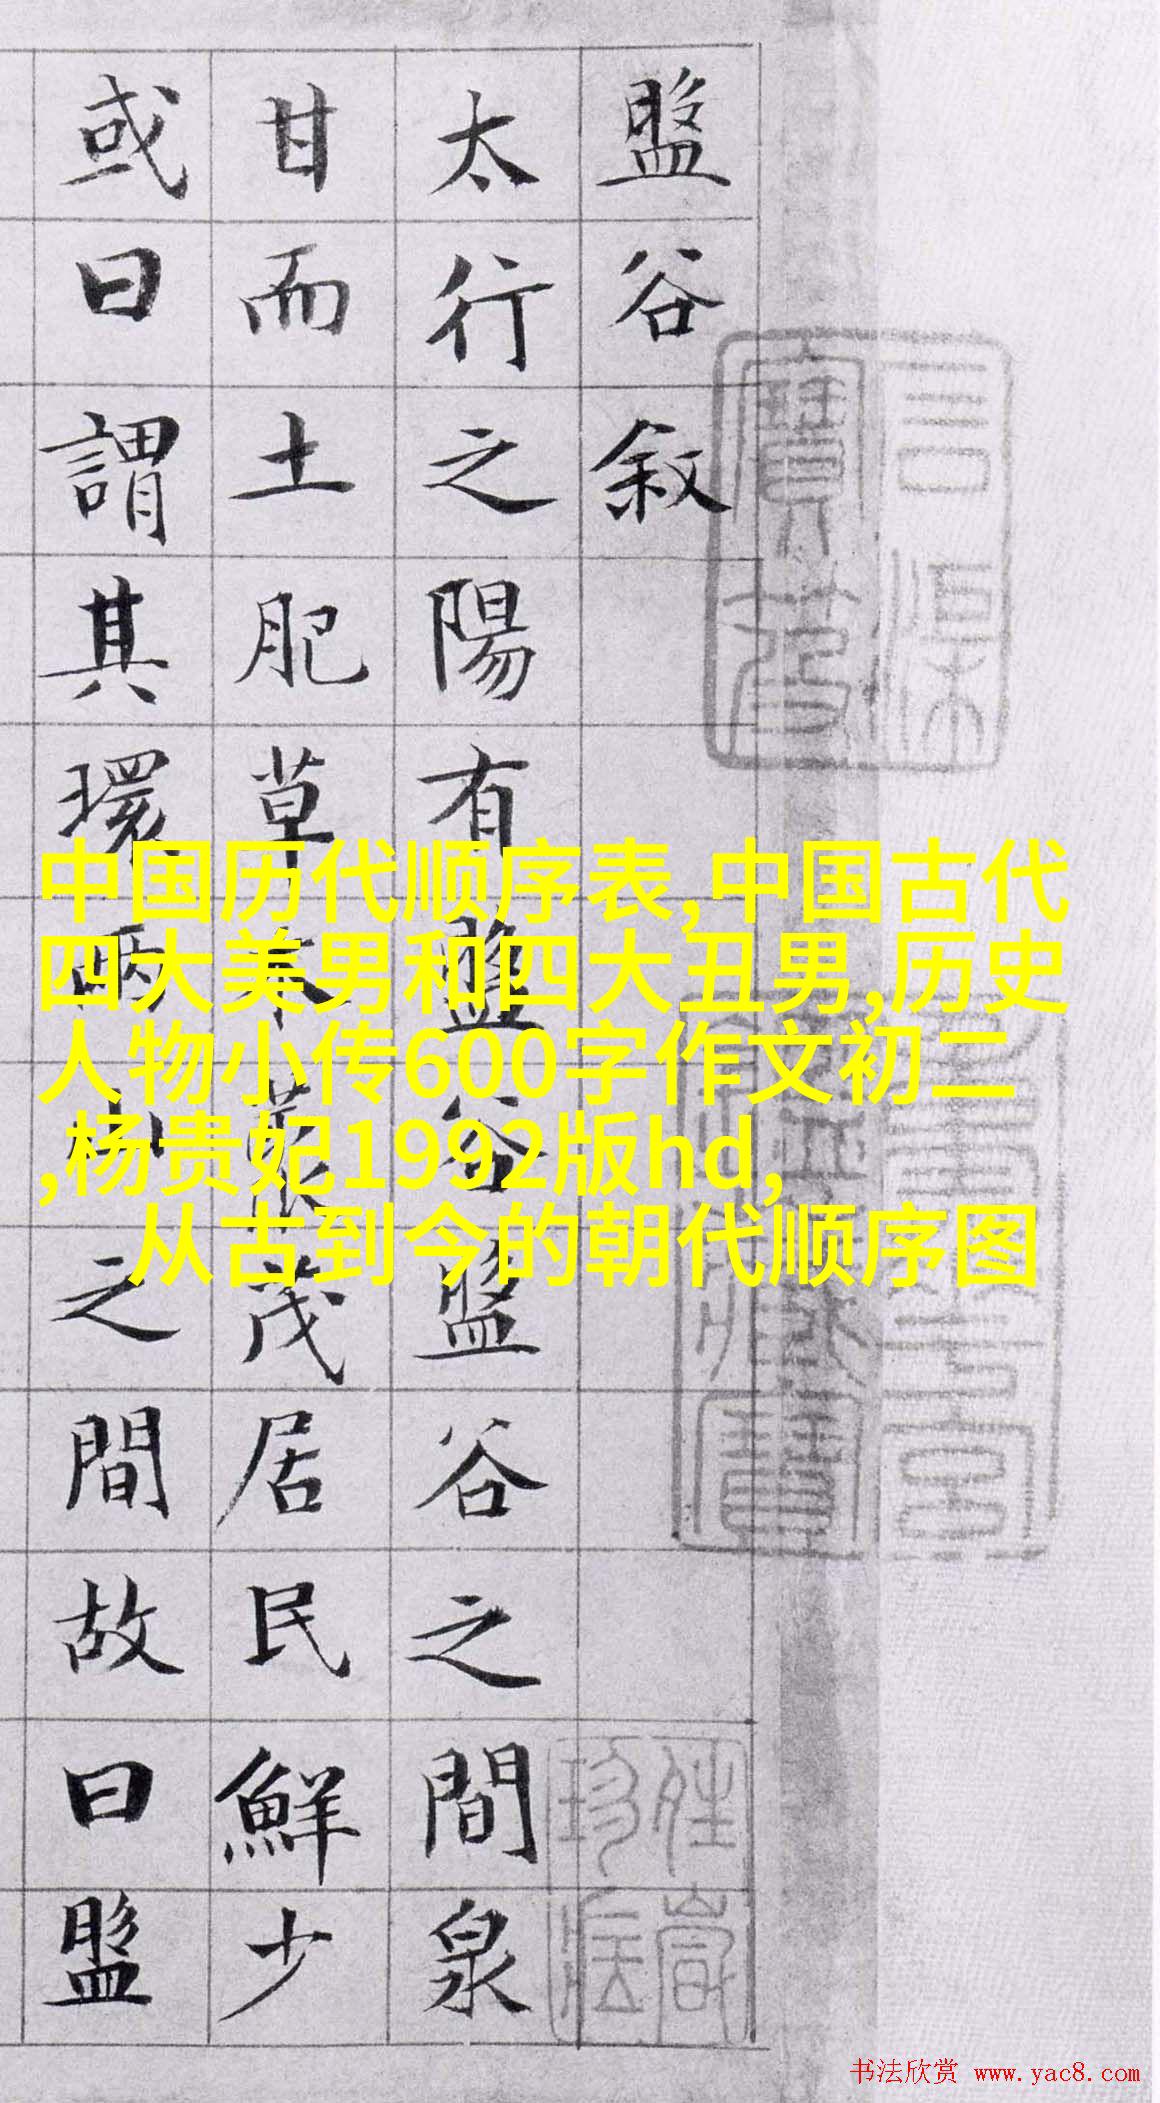 盤谷敘
太行之陽有盤谷盤谷之間泉
甘而土肥草木藂茂居民鮮少
或曰謂其環兩山之間故曰盤
中国历代顺序表,中国古代
四大美男和四大丑男,历史
人物小传600字作文初二
,杨贵妃1992版hd,
从古到今的朝代顺序图
书法欣赏 www.yac8.com